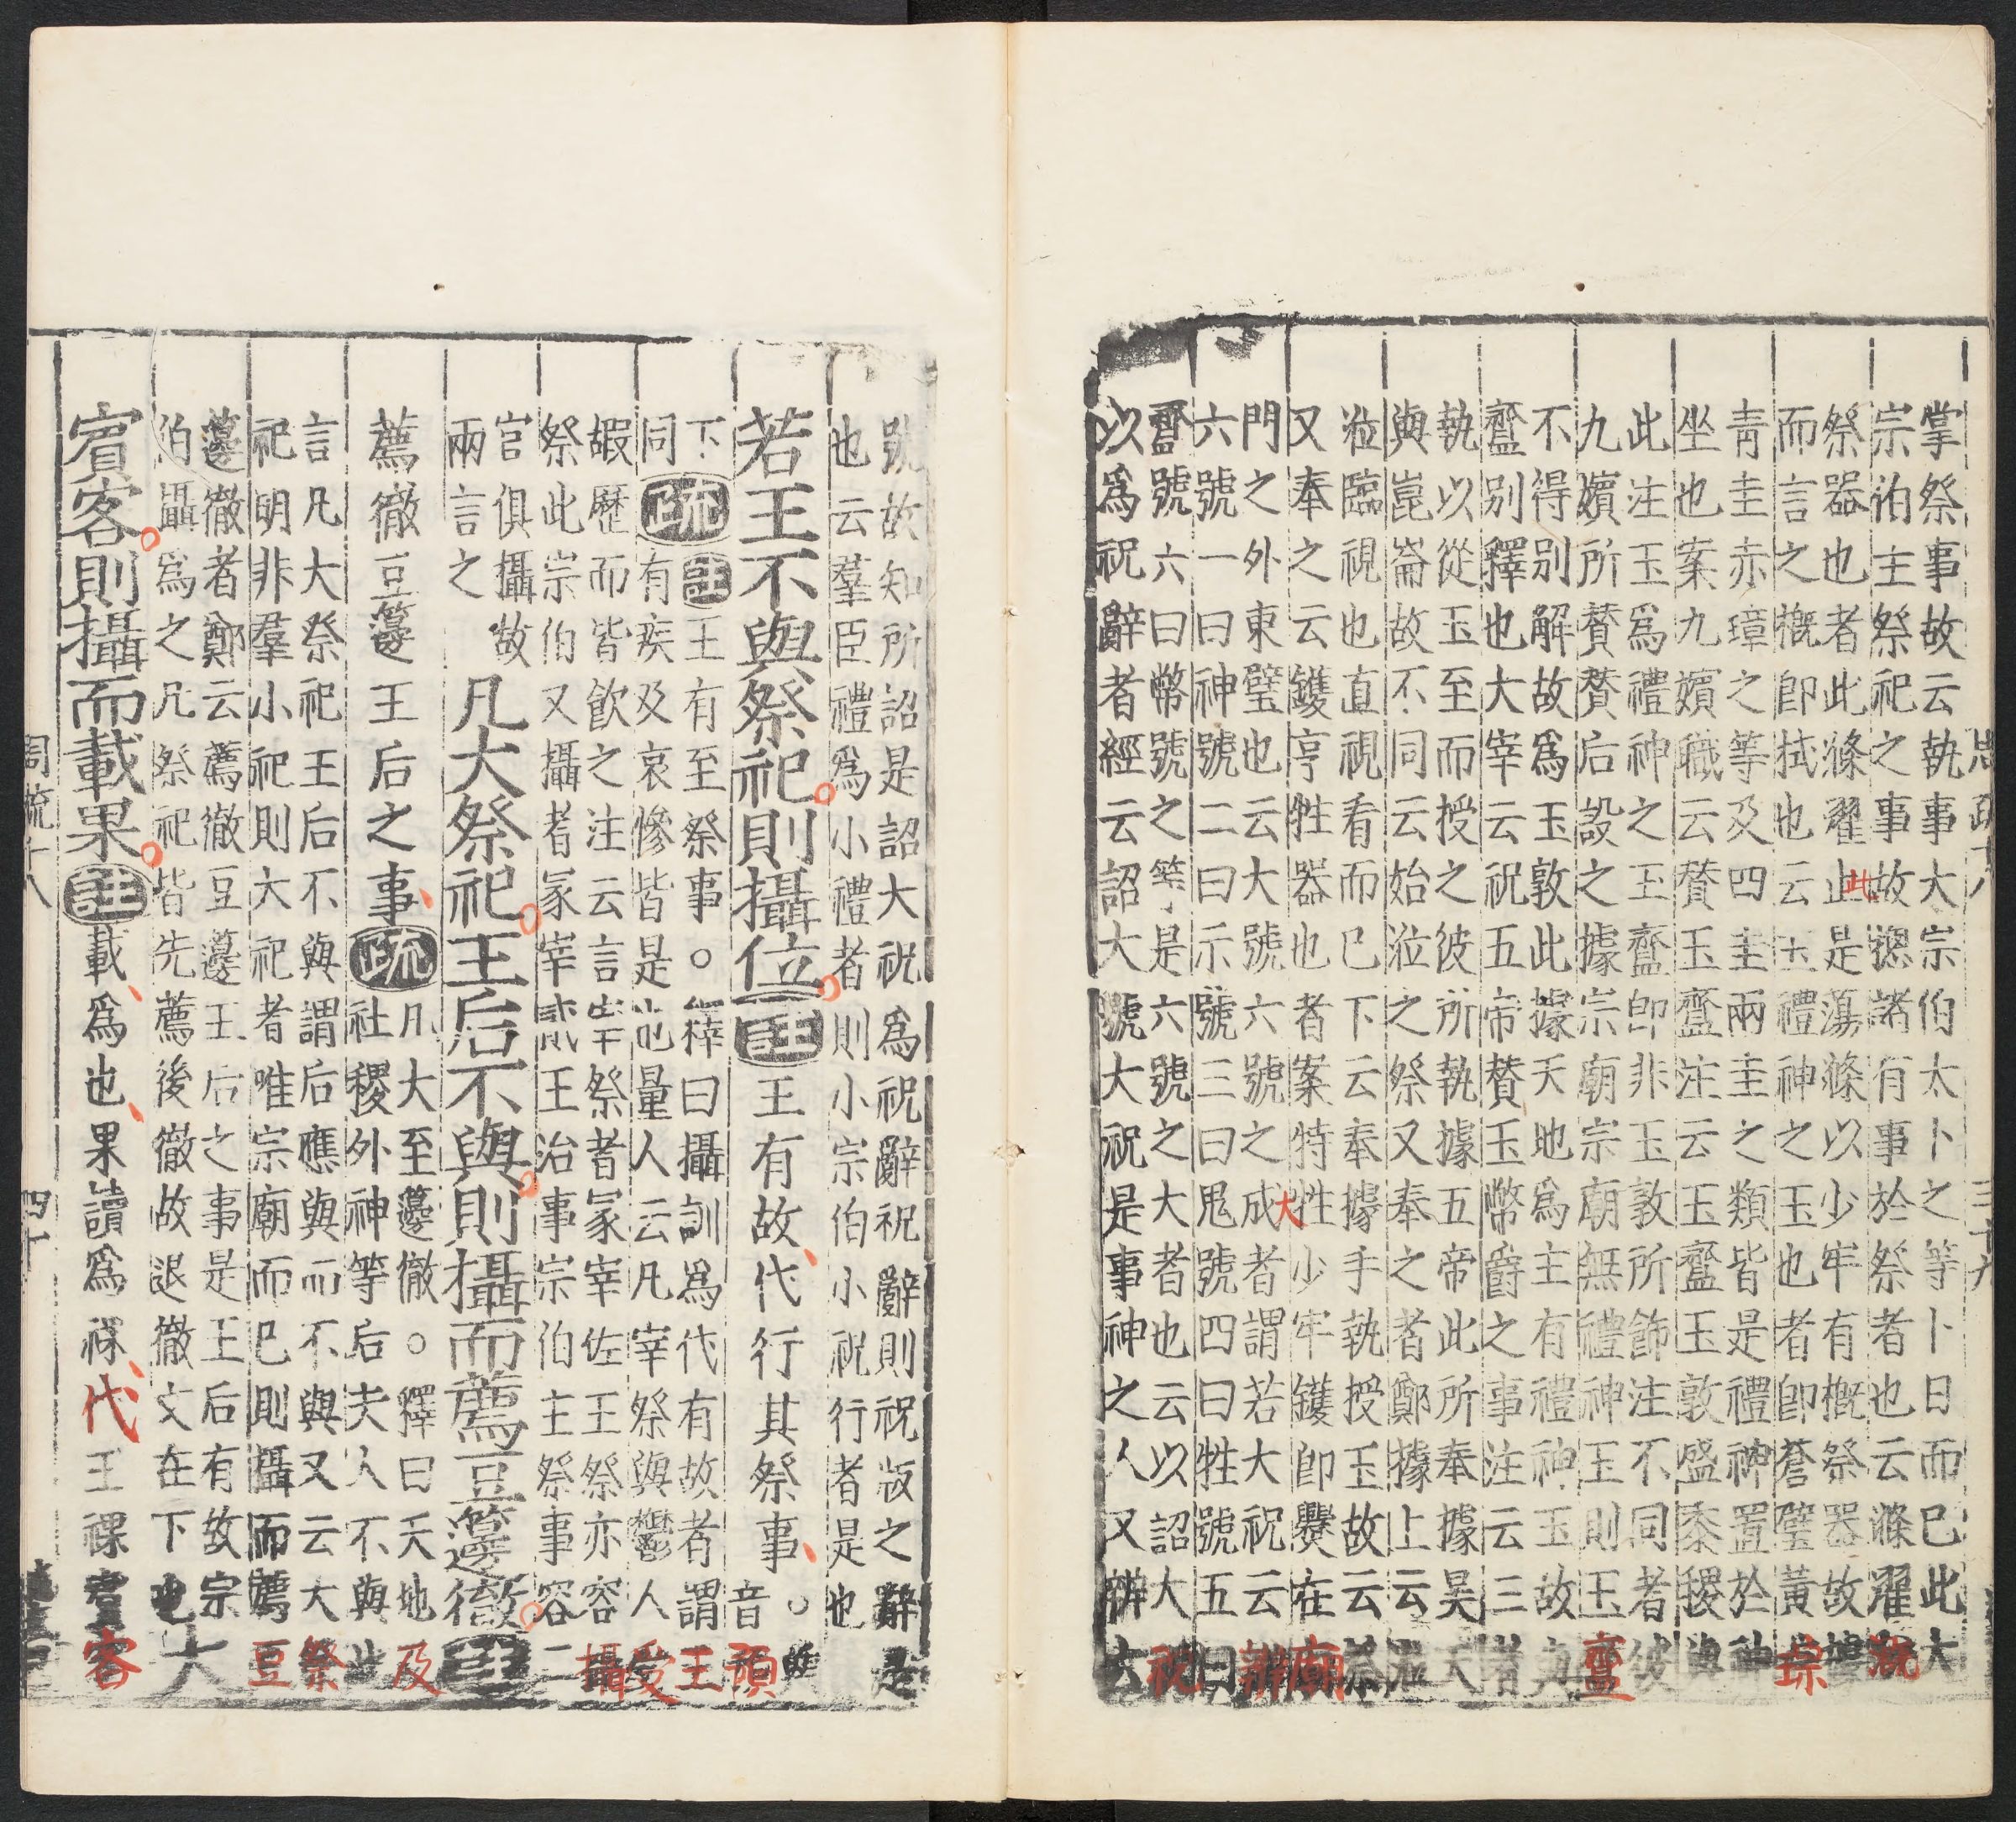 周疏十八 三十九
掌祭事故云執事大宗伯太卜之等卜日而已此大
宗伯主祭祀之事故揔諸有事於祭者也云滌濯溉
祭器也者此滌濯止是蕩滌以少牢有概祭器故據
此
而言之概卽拭也云玉禮神之玉也者卽蒼璧黃琮
青圭赤璋之等及四圭兩圭之類皆是禮神置於神
坐也案九嬪職云贊玉齍注云玉齍玉敦盛黍稷與
此注玉爲禮神之玉齍卽非玉敦所飾注不同者彼
九嬪所贊贊后設之據宗廟宗廟無禮神玉則玉齍
不得別解故爲玉敦此據天地爲主有禮神玉故與
齍別釋也大宰云祝五帝贊玉幣爵之事注云三者
執以從玉至而授之彼所執據五帝此所奉據昊天
與崑崙故不同云始涖之祭又奉之者鄭據上云涖
涖臨視也直視看而已下云奉據手執授玉故云祭
又奉之云鑊亨牲器也者案特牲少牢鑊卽爨在廟
門之外東壁也云大號六號之成者謂若大祝云辨
大
六號一曰神號二曰示號三曰鬼號四曰牲號五曰
齍號六曰幣號之等是六號之大者也云以詔大祝
以爲祝辭者經云詔大號大祝是事神之人又辨六
號故知所詔是詔大祝爲祝辭祝辭則祝版之辭是
也云羣臣禮爲小禮者則小宗伯小祝行者是也
若王不與祭祀則攝位註王有故代行其祭事。與音預
下同疏註王有至祭事。釋曰攝訓爲代有故者謂王
有疾及哀慘皆是也量人云凡宰祭與鬱人受
嘏歷而皆飲之注云言宰祭者冢宰佐王祭亦容攝
祭此宗伯又攝者冢宰貳王治事宗伯主祭事容二
官俱攝故
兩言之
凡大祭祀王后不與則攝而薦豆籩徹註
薦徹豆籩王后之事疏凡大至籩徹。釋曰天地及
社稷外神等后夫人不與此
言凡大祭祀王后不與謂后應與而不與又云大祭
祀明非羣小祀則大祀者唯宗廟而已則攝而薦豆
籩徹者鄭云薦徹豆籩王后之事是王后有故宗
伯攝爲之凡祭祀皆先薦後徹故退徹文在下也
大
賓客則攝而載果註載爲也果讀爲祼代王祼賓客
周疏十八 四十